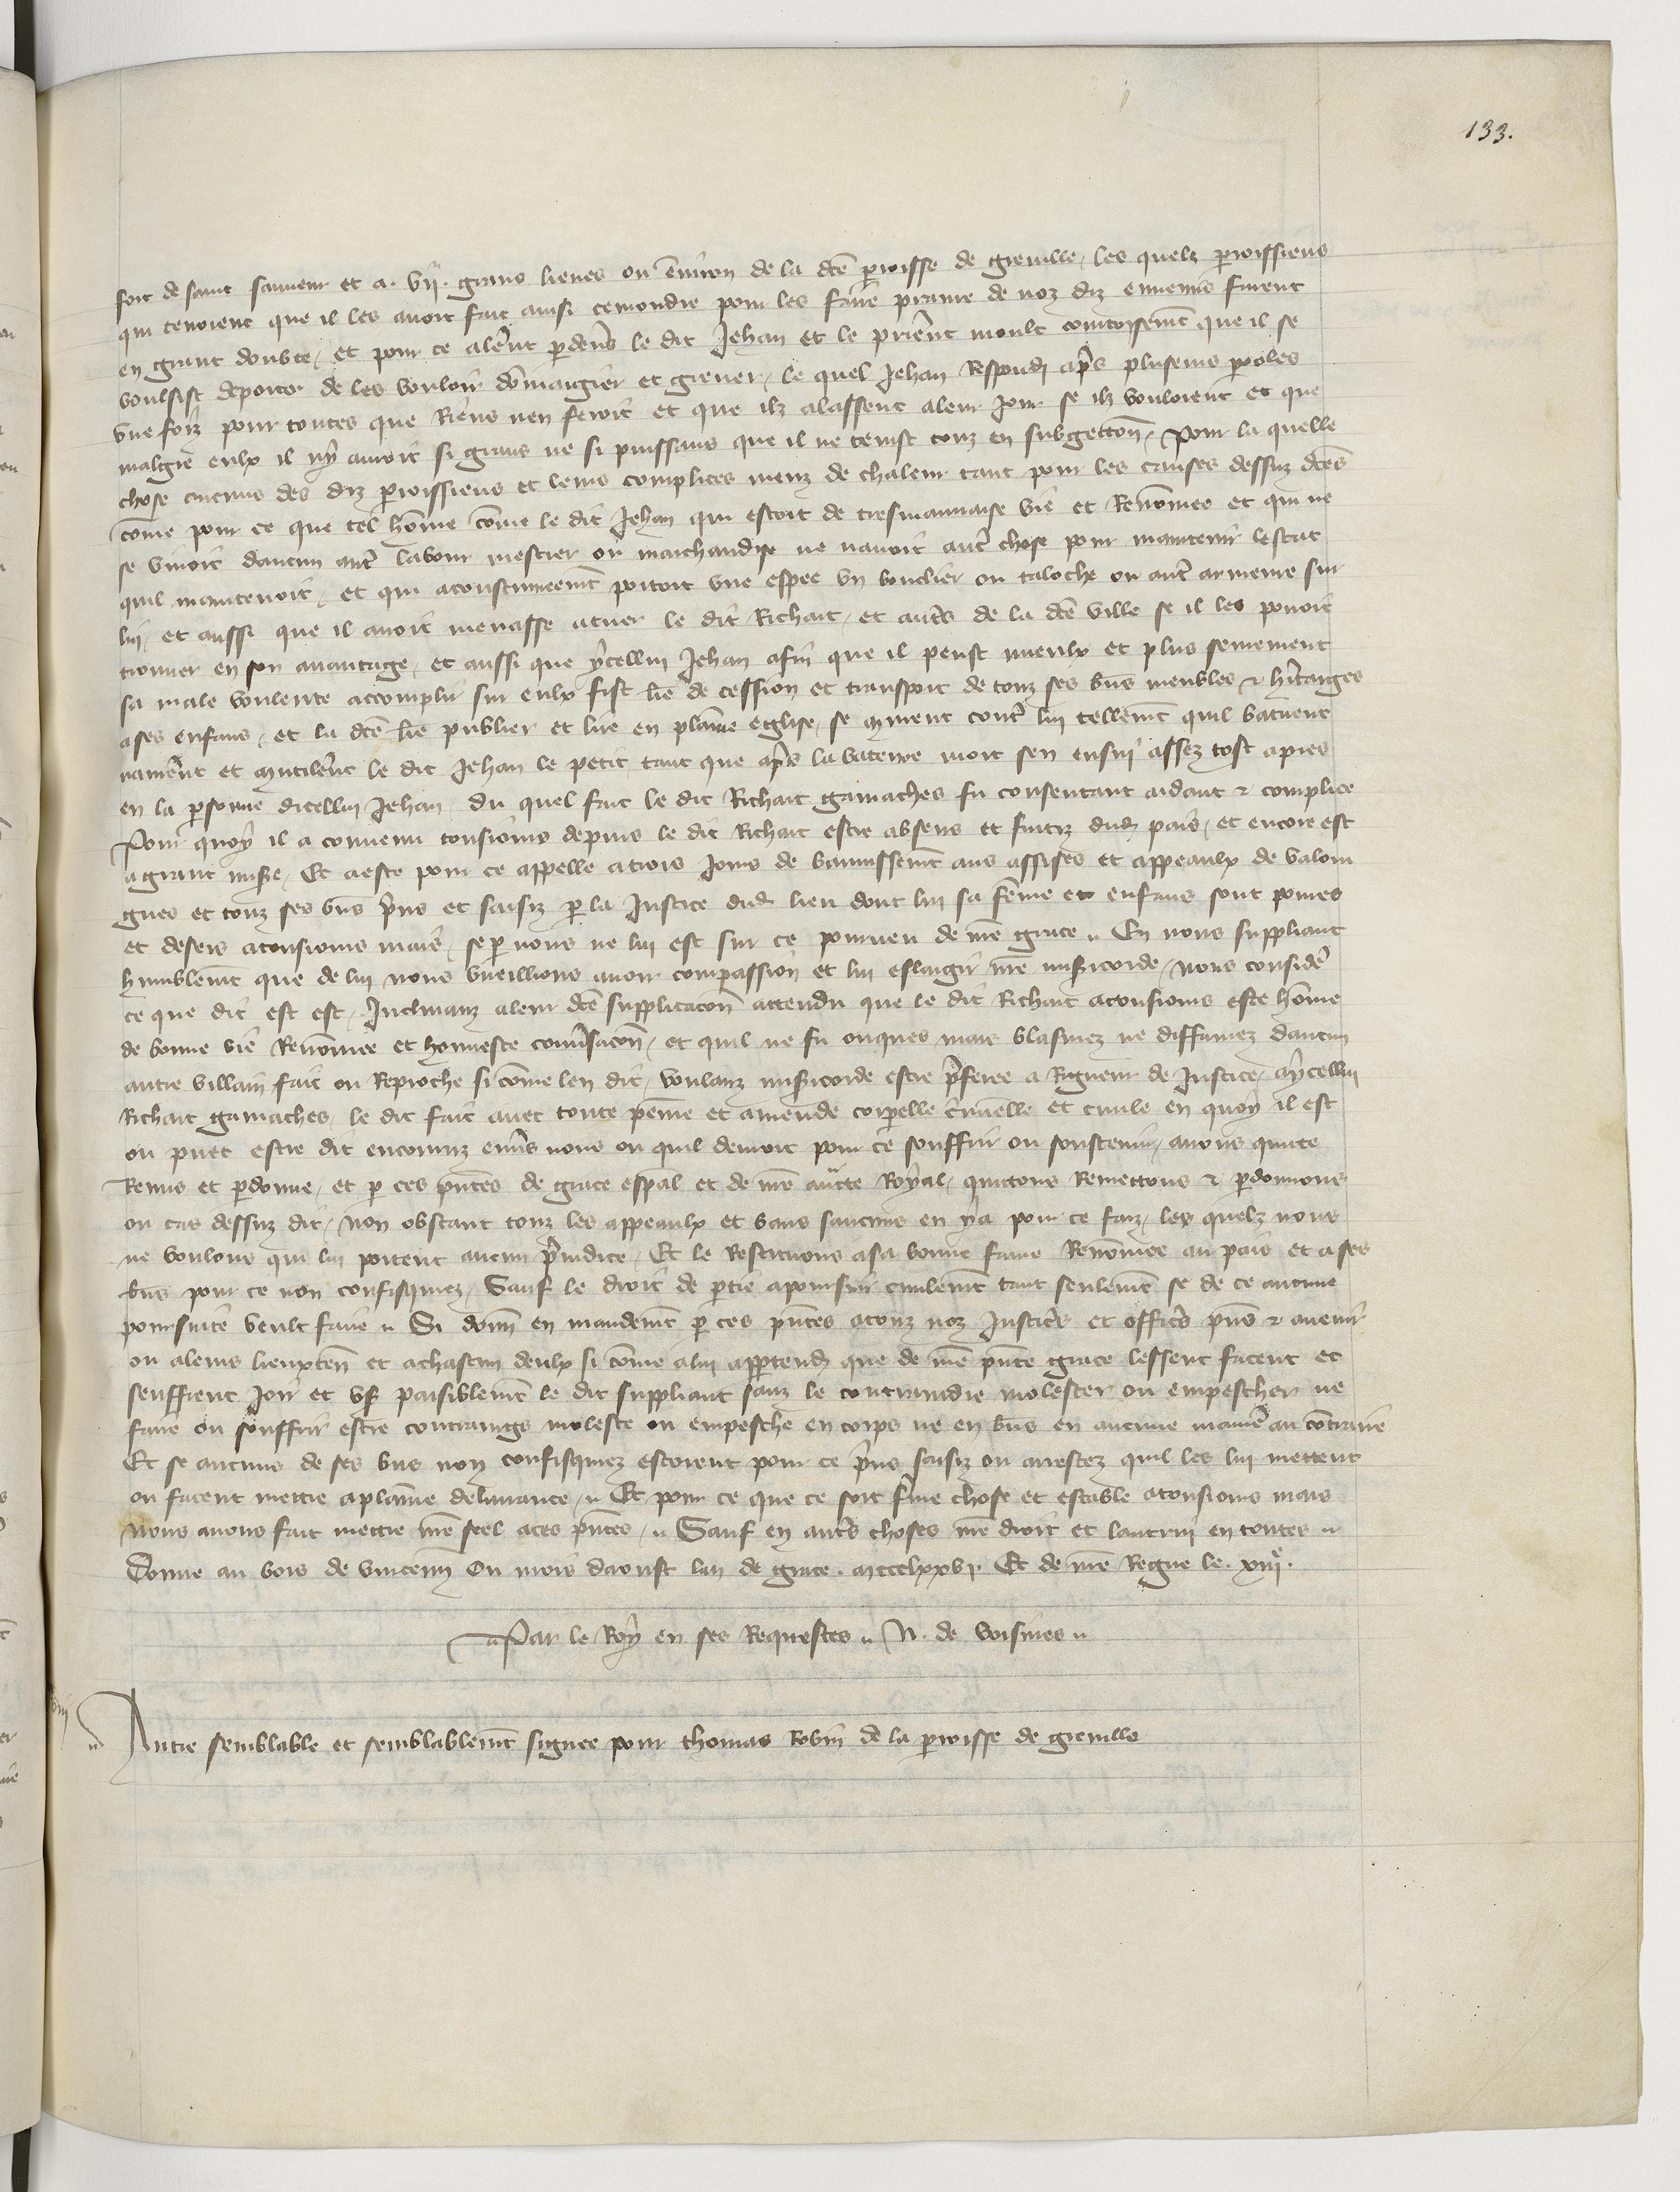 133.
fort de saint sauveur et a .vij. grans lieues ou environ de la dcẽ p̃roisse de greville, les quelz p̃roissiens
qui tenoient que il les avoit fait ainsi cemondre pour les faire prenre de noz diz ennemis furent
en grant doubte, et pour ce alerẽt p̃ devers le dit Jehan et le prierẽt moult courtoisemẽt que il se
voulsist deporter de les vouloir dõmaigier et grever, le quel Jehan Respondi apr̃s pluseurs p̃oles
une foiz pour toutes que Riens nen feroit et que ilz alassent aleur jour se ilz vouloient et que
malgre eulx il ny auroit si grans ne si puissans que il ne tenist touz en subgection, Pour la quelle
chose aucuns des diz p̃roissiens et leurs complices meuz de chaleur tant pour les causes dessuz dcẽs
cõme pour ce que tel hõme cõme le dit Jehan qui estoit de tresmauvaise vie et Renõmee et qui ne
se vivoit daucun autr̃ labour mestier ou marchandise ne navoit autr̃ chose pour maintenir lestat
quil maintenoit, et qui acoustumeemẽt portoit une espee un bouclier ou taloche ou autr̃ armeure sur
lui, et aussi que il avoit menasse atuer le dit Richart, et autr̃s de la dcẽ ville se il les povoit
trouver en son avantage, et aussi que ycellui Jehan afin que il peust mieulx et plus seurement
sa male voulente accomplir sur eulx fist lr̃e de cession et transport de touz ses bñs meubles & hr̃itaiges
a ses enfans, et la dcẽ lr̃e publier et lire en plaine eglise, se murent contr̃ lui tellemẽt quil batirent
navrerẽt et mutilerẽt le dit Jehan le petit tant que apr̃s la bateure mort sen ensui assez tost apres
en la p̃sonne dicellui Jehan, du quel fait le dit Richart gamaches fu consentant aidant & complice
Pour quoy il a convenu tousiours depuis le dit Richart estre absens et fuitiz dud. pais, et encore est
a grant mis̃e, Et a este pour ce appelle a trois jours de bannissemẽt aus assises et appeaulx de valoin
gnes et touz ses bñs pr̃ins et saisiz p̃ la Justice dud. lieu dont lui sa fẽme et enfans sont povres
et desers atousiours mais, se p̃ nous ne lui est sur ce pourveu de nr̃e grace. En nous suppliant
humblemẽt que de lui nous vueillions avoir compassion et lui eslargir nr̃e mis̃icorde, nous considerẽ
ce que dit est est, Inclinanz a leur dcẽ supplicacõn attendu que le dit Richart atousiours este hõme
de bonne vie Renõmee et honneste conṽsacõn, et quil ne fu onques mais blasmez ne diffamez daucun
autre villain fait ou Reproche si cõme len dit, voulanz mis̃icorde estre pr̃feree a Rigueur de Justice, aycellui
Richart gamaches, le dit fait avec toute peine et amende corp̃elle cr̃iminelle et civile en quoy il est
ou puet estre dit encouruz enṽs nous ou quil devroit pour ce souffrir ou soustenir, avons quicte
Remis et p̃donne, et p̃ ces pñtes de grace esp̃al et de nr̃e auctẽ Royal, quictons Remettons & p̃donnons
ou cas dessuz dit, Non obstant touz les appeaulx et bans saucuns en y a pour ce faiz, les quelz nous
ne voulons qui lui portent aucun pr̃iudice, Et le Restituons a sa bonne fame Renõmee au pais et a ses
bñs pour ce non confisquez, Sauf le droit de p̃tie a poursuir civilemẽt tant seulemẽt se de ce aucune
poursuite veult faire. Si donñ en mandemẽt p̃ ces pñtes atouz noz Justicr̃s et officr̃s pñs & avenir
ou a leurs lieuxteñ et achascun deulx si cõme a lui app̃tend. que de nr̃e pñte grace lessent facent et
seuffrent joir et us̃ paisiblemẽt le dit suppliant sanz le contraindre molester ou empescher ne
faire ou souffrir estre contraings moleste ou empesche en corps ne en bñs en aucune manier̃ au cõtraire
Et se aucuns de ses bñs non confisquez estoient pour ce pr̃ins saisiz ou arrestez quil les lui mettent
ou facent mettre a plaine delivrance. Et pour ce que ce soit fr̃me chose et estable atousiours mais
Nous avons fait mettre nr̃e seel a ces pñtes. Sauf en autr̃s choses nr̃e droit et lautrui en toutes.
Donne au bois de vincenñ Ou mois daoust lan de grace. mccclxxvj. Et de nr̃e Regne le .xiij.e
Par le Roy en ses Requestes. N. de voisines.
Autre semblable et semblablemẽt signee pour thomas Robin de la p̃roisse de greville